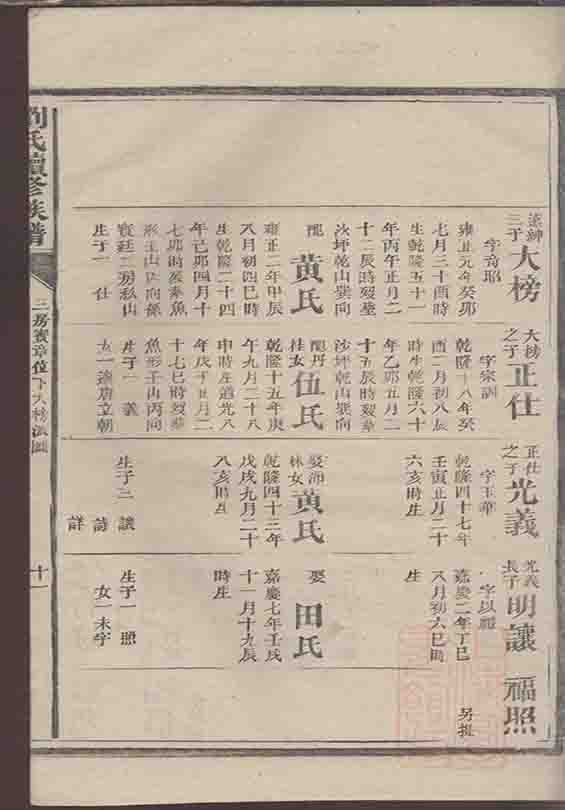 劉氏續修族譜
三房賓章位下大榜派圖
十一
蓬紳
三子
大榜
字奇昭
雍正元年癸卯
七月三十酉時
生乾隆五十一
年丙午正月二
十二辰時歿塟
沙坪乾山巽向
配
黃氏
雍正二年甲辰
八月初四巳時
生乾隆二十四
年己卯四月十
七卯時歿塟魚
形壬山丙向係
賓廷二房私山
生子一
仕
大榜
之子
正仕
字宗訓
乾隆十八年癸
酉二月初八辰
時生乾隆六十
年乙卯五月二
十五辰時歿塟
沙坪乾山巽向
配丹
桂女
伍氏
乾隆十五年庚
午九月二十八
申時生道光八
年戊子五月二
十七巳時歿塟
魚形壬山丙向
生子一
義
女一適唐立朝
正仕
之子
光義
字玉華
乾隆四十七年
壬寅正月二十
六亥時生
娶沛
林女
黃氏
乾隆四十三年
戊戌九月二十
八亥時生
生子三
讓
詩
詳
光義
長子
明讓
字以禮
嘉慶二年丁巳
八月初六巳時
生
娶
田氏
嘉慶七年壬戌
十一月十九辰
時生
生子一
照
女一未字
福照
另提